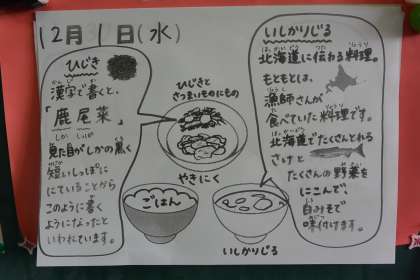 12月11日(水)
ひじき
漢字で書くと、
「鹿尾菜」
しか しっぽ
見た目がしかの黒く
短いしっぽに
にていることから
このように書く
ようになったと
いわれています。
ひじきと
さつまいものにもの
やきにく
ごはん
いしかりじる
いしかりじる
北海道に伝わる料理。
もともとは、
漁師さんが
食べていた料理です。
北海道でたくさんとれる
さけと
たくさんの野菜を
にこんで、
白みそで
味付けます。